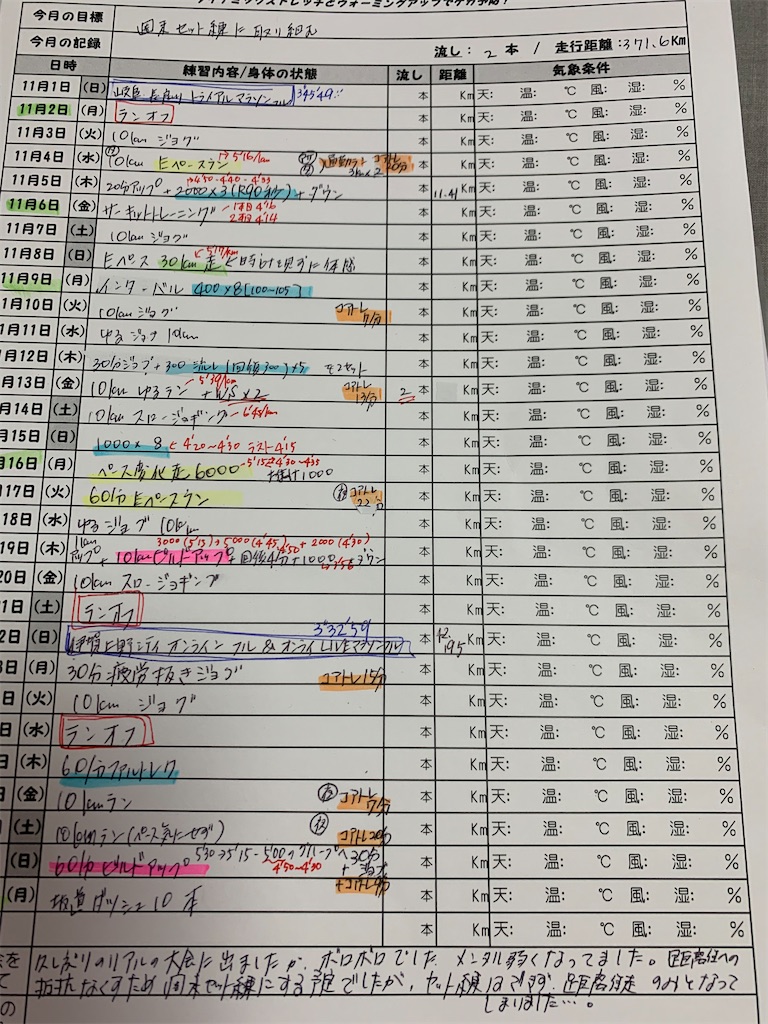 今月の目標 週末セット練に取り組む
今月の記録 流し: 2 本 / 走行距離:371.6Km
日時 練習内容/身体の状態 流し 距離 気象条件
11月1日 (日) トライアルマラソン 3'45'49 本 Km 天: 温: ℃ 風: 湿: %
11月2日 (月) ランオフ 本 Km 天: 温: ℃ 風: 湿: %
11月3日 (火) 10km ジョグ 本 Km 天: 温: ℃ 風: 湿: %
11月4日 (水) 10km Eペースラン →5'16/km 3km×2 コアトレ 20分 本 Km 天: 温: ℃ 風: 湿: %
11月5日 (木) 20分アップ + 2000×3(R90秒) + ダウン →4'50-4'40-4'33 本 11.41 Km 天: 温: ℃ 風: 湿: %
11月6日 (金) サーキットトレーニング 1本目4'16 2本目4'14 本 Km 天: 温: ℃ 風: 湿: %
11月7日 (土) 10km ジョグ 本 Km 天: 温: ℃ 風: 湿: %
11月8日 (日) Eペース 30km走 時計を見ずに体感 5'17/km 本 Km 天: 温: ℃ 風: 湿: %
11月9日 (月) インターバル 400×8[100~105] 本 Km 天: 温: ℃ 風: 湿: %
1月10日 (火) 10km ジョグ コアトレ 7分 本 Km 天: 温: ℃ 風: 湿: %
1月11日 (水) ゆるジョグ 10km 本 Km 天: 温: ℃ 風: 湿: %
1月12日 (木) 30分ジョグ + 300 流し(回復300)×5 を2セット 本 Km 天: 温: ℃ 風: 湿: %
月13日 (金) 10km ゆるラン 5'39/km + W/S×2 コアトレ 13分 2本 Km 天: 温: ℃ 風: 湿: %
月14日 (土) 10km スロージョギング 6'45/km 本 Km 天: 温: ℃ 風: 湿: %
月15日 (日) 1000×8 ← 4'20~4'30 ラスト4'15 本 Km 天: 温: ℃ 風: 湿: %
月16日 (月) ペース変化走6000 5'15⇄4'30~4'35 1000 本 Km 天: 温: ℃ 風: 湿: %
月17日 (火) 60分Eペースラン コアトレ 22分 本 Km 天: 温: ℃ 風: 湿: %
月18日 (水) ゆるジョグ 10km 本 Km 天: 温: ℃ 風: 湿: %
3000(5'15)+5000(4'45)+2000(4'30)
月19日 (木) アップ + 10kmビルドアップ + 回復4分+1000+ダウン 3'56 本 Km 天: 温: ℃ 風: 湿: %
20日 (金) 10km スロージョギング 本 Km 天: 温: ℃ 風: 湿: %
1日 (土) ランオフ 本 Km 天: 温: ℃ 風: 湿: %
3'32'59
2日 (日) 伊賀上野シティオンラインフル&オンライLIVEマラソンフル 本 42.195 Km 天: 温: ℃ 風: 湿: %
日 (月) 30分疲労抜きジョグ コアトレ15分 本 Km 天: 温: ℃ 風: 湿: %
日 (火) 10km ジョグ 本 Km 天: 温: ℃ 風: 湿: %
日 (水) ランオフ 本 Km 天: 温: ℃ 風: 湿: %
(木) 60分ファルトレク 本 Km 天: 温: ℃ 風: 湿: %
(金) 10kmラン コアトレ 7分 本 Km 天: 温: ℃ 風: 湿: %
(土) 10kmラン(ペース気にせず) コアトレ20分 本 Km 天: 温: ℃ 風: 湿: %
(日) 60分ビルドアップ 5'30→5'15-5'00 30分 4'50~4'30 +コアトレ9分 本 Km 天: 温: ℃ 風: 湿: %
(月) 坂道ダッシュ10本 本 Km 天: 温: ℃ 風: 湿: %
本 Km 天: 温: ℃ 風: 湿: %
久しぶりのリアルの大会に出ましたが、ボロボロでした。メンタル弱くなってました。距離走への
抵抗なくすため週末セット練にする予定でしたが、セット練はできず、距離走のみとなって
しまいました…。